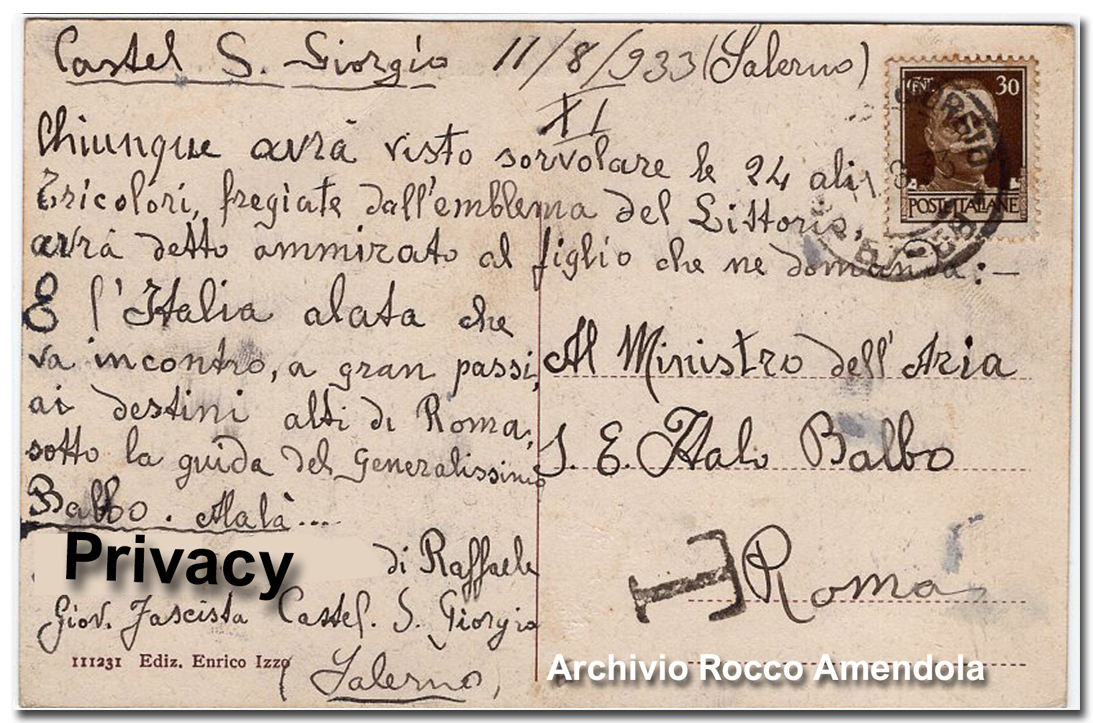 Castel S. Giorgio 11/8/933 (Salerno)
XI
Chiunque avrà visto sorvolare le 24 ali
tricolori, fregiate dall'emblema del Littorio,
avrà detto ammirato al figlio che ne domanda: —
È l'Italia alata che
va incontro, a gran passi,
ai destini alti di Roma,
sotto la guida del Generalissimo
Balbo. Alalà....
Privacy di Raffaele
Giov. Fascista Castel. S. Giorgio
111231 Ediz. Enrico Izzo
(Salerno)
CENT. 30
POSTE ITALIANE
Al Ministro dell'Aria
S. E. Italo Balbo
T
Roma
Archivio Rocco Amendola